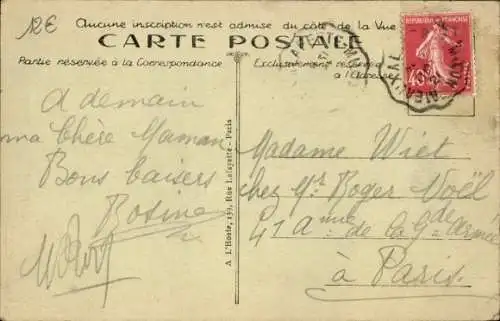 12€
Aucune inscription n'est admise du côté de la Vue
CARTE POSTALE
Partie réservée à la Correspondance
Exclusivement réservé
à l'Adresse
REPUBLIQUE FRANÇAISE
40
A demain
ma Chère Maman
Bons baisers
Rosine
A L'Hoste, 139, Rue Lafayette - Paris
Madame Wiet
chez Mr Roger Noël
41 Anue de la Gde Armée
à Paris